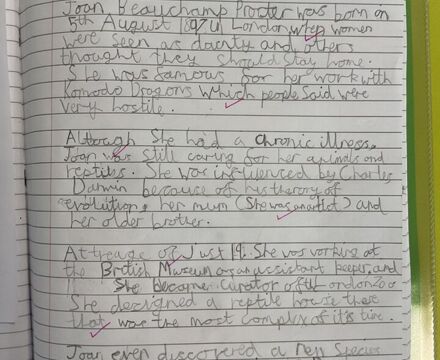 Joan Beauchamp Procter was born on
5th August 1897 in London when women
were seen as dainty and others
thought they should stay home.
She was famous for her work with
Komodo Dragons which people said were
very hostile.
Although She had a chronic illness,
Joan was still caring for her animals and
reptiles. She was influenced by Charles
Darwin because of his therory of
evolution, her mum (She was an artist) and
her older brother.
At the age of Just 19. She was working at
the British Museum as an assistant keeper, and
She become curator of the London zoo
She designed a reptile house there
that was the most complex of it's time.
Joan even discovered a new Species